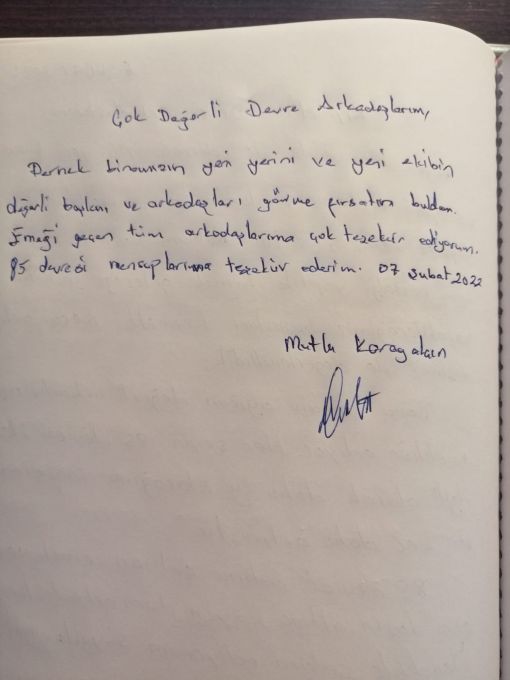 Çok Değerli Devre Arkadaşlarım,
Dernek binamızın yeni yerini ve yeni ekibin
değerli başkanı ve arkadaşları görme fırsatım buldum.
Emeği geçen tüm arkadaşlarıma çok teşekür ediyorum.
85 devresi mensuplarıma teşekür ederim. 07 Şubat 2022
Mutlu